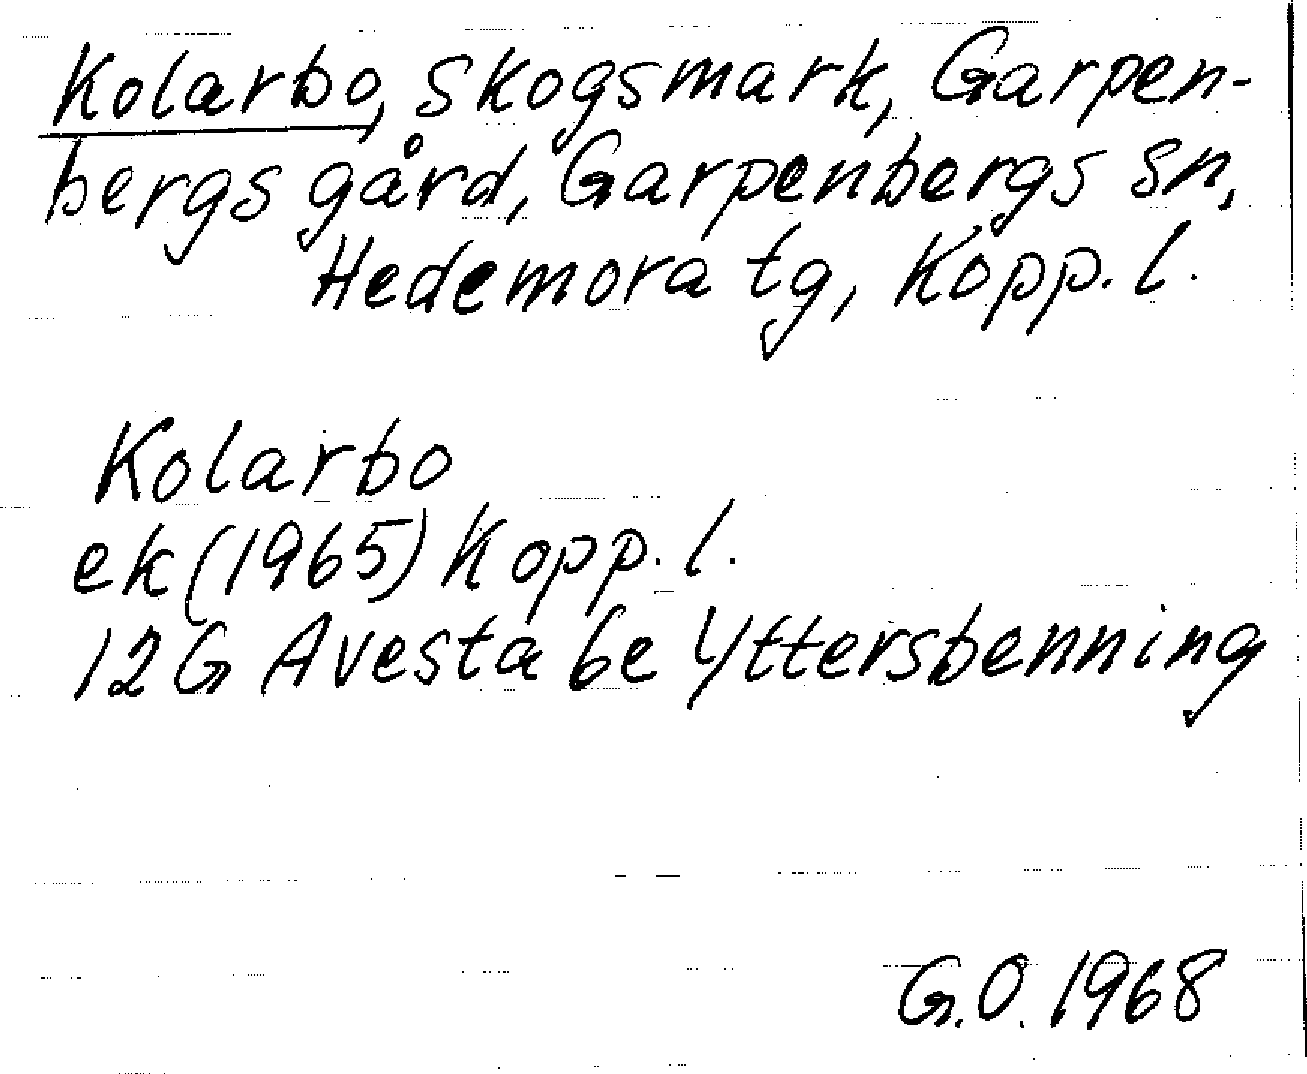 Kolarbo, skogsmark, Garpen-
bergs gård, Garpenbergs sn,
Hedemora tg, Kopp. l.
Kolarbo
ek (1965) Kopp. l.
12G Avesta 6e Yttersbenning
G.O. 1968